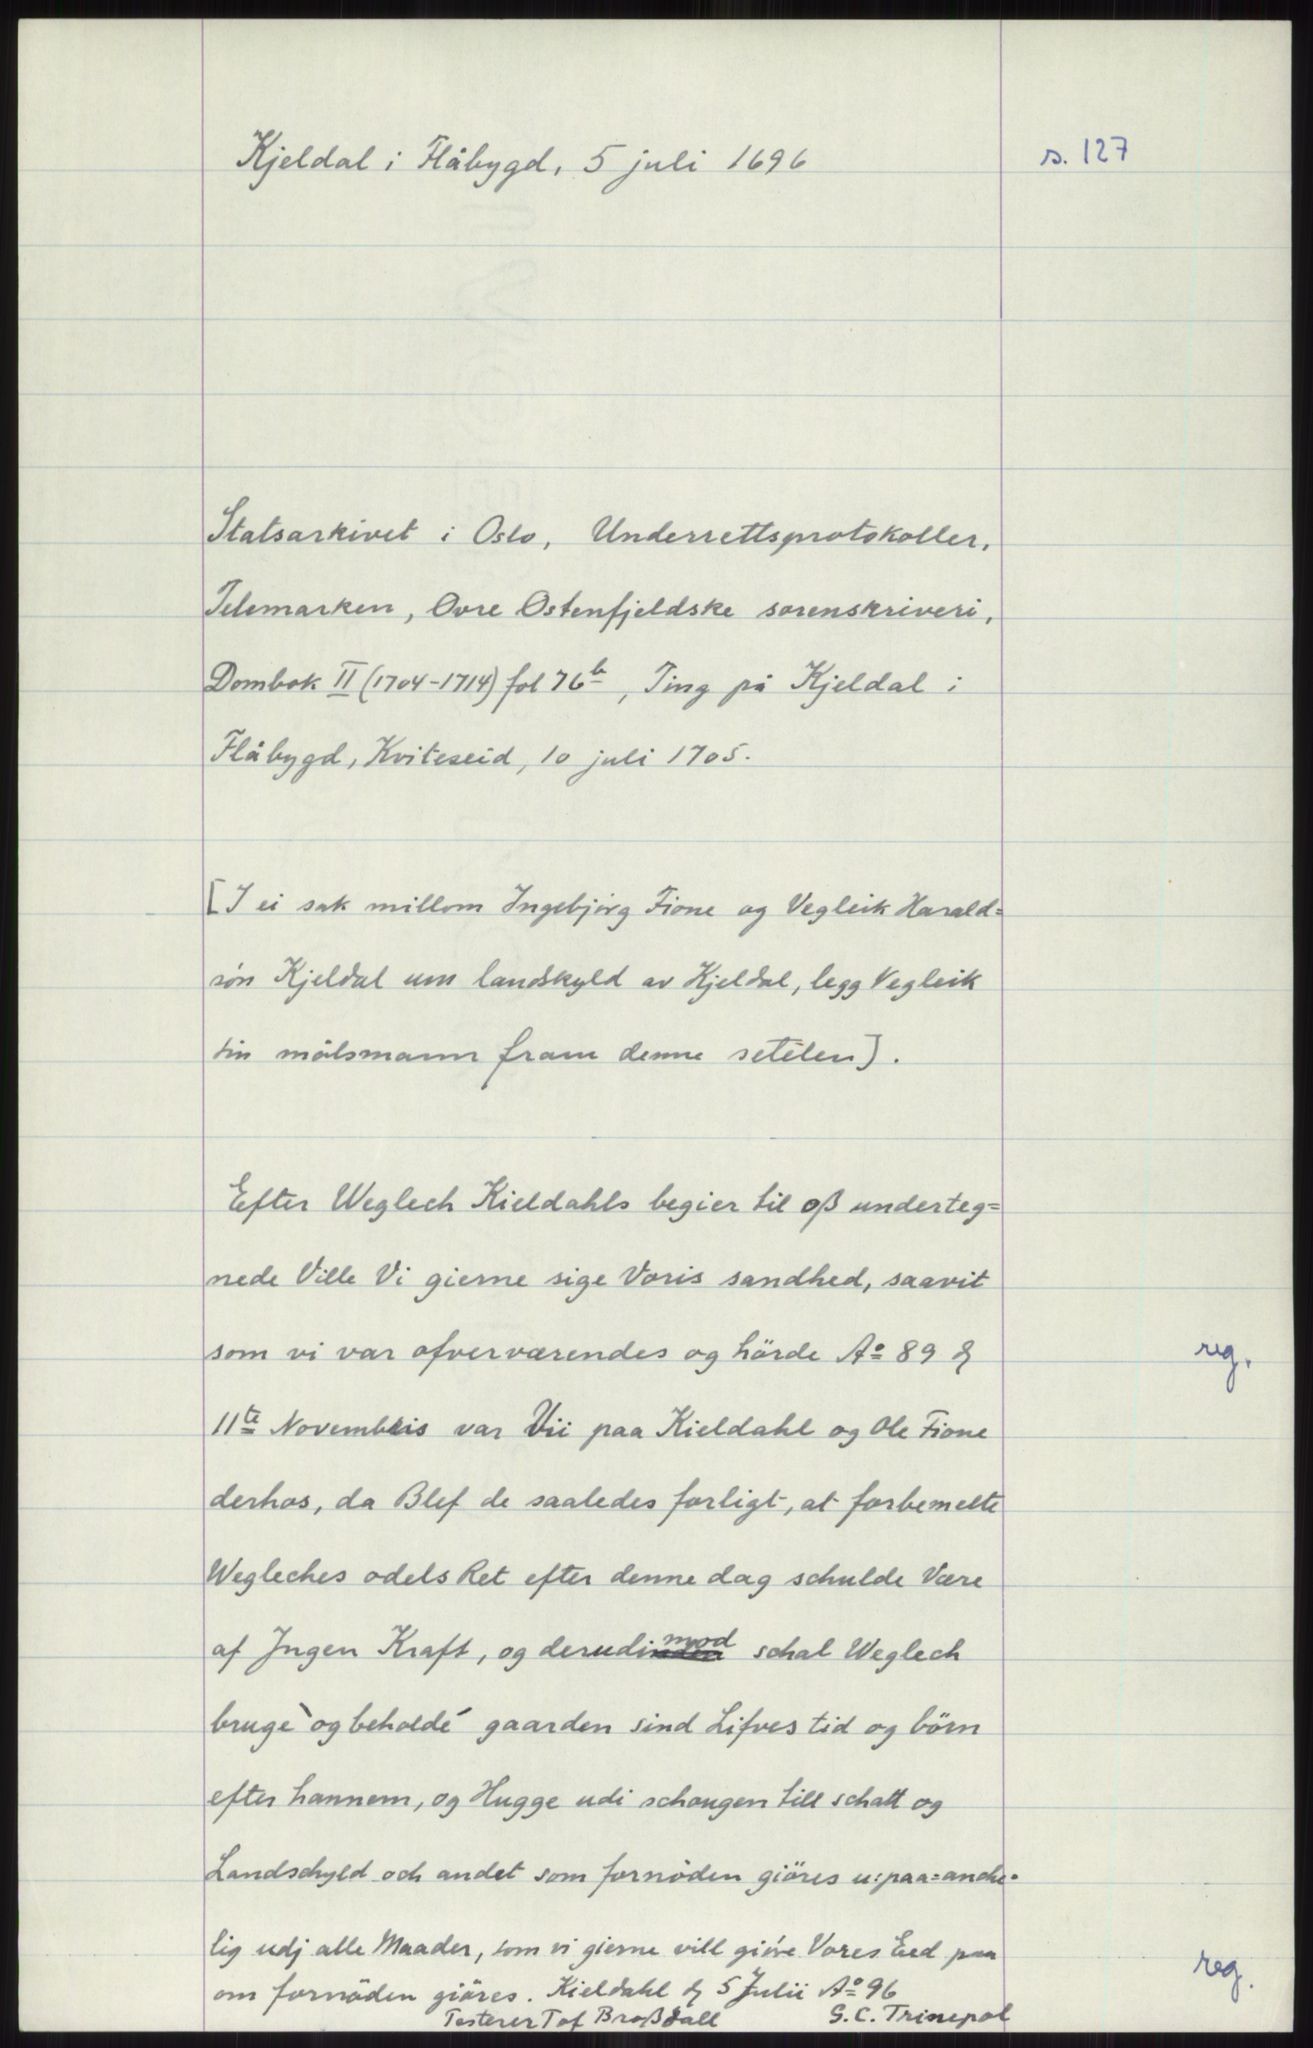 Kjeldal i Flåbygd, 5 juli 1696
s. 127
Statsarkivet i Oslo, Underrettsprotokoller,
Telemarken, Ovre Ostenfjeldske sorenskriveri,
Dombok II (1704-1714) fol 76b, Ting på Kjeldal i
Flåbygd, Kviteseid, 10 juli 1705.
[I ei sak millom Ingebjörg Fione og Vegleik Harald=
són Kjeldal um landskyld av Kjeldal, legg Vegleik
sin målsmann fram denne setelen].
Efter Weglech Kieldahls begier til oß underteg=
nede Ville Vi gierne sige Voris sandhed, saavit
som vi var ofverværendes og hörde Ao 89 d
reg.
11te Novembris var Vii paa Kieldahl og Ole Fione
derhos, da Blef de saaledes forligt, at forbemelte
Wegleches odels Ret efter denne dag schulde Være
af Jngen Kraft, og derudimod schal Weglech
bruge og beholde gaarden sind Lifves tid og börn
efter hannem, og Hugge udi schougen till schatt og
Landschyld och andet som fornöden giöres u:paa=anche=
lig udj alle Maader, som vi gierne vill giöre Vores Eed paa
reg.
om fornöden giöres. Kieldahl d 5 Julii Ao 96
Testerer Tof Broßdall G. C. Trinepol